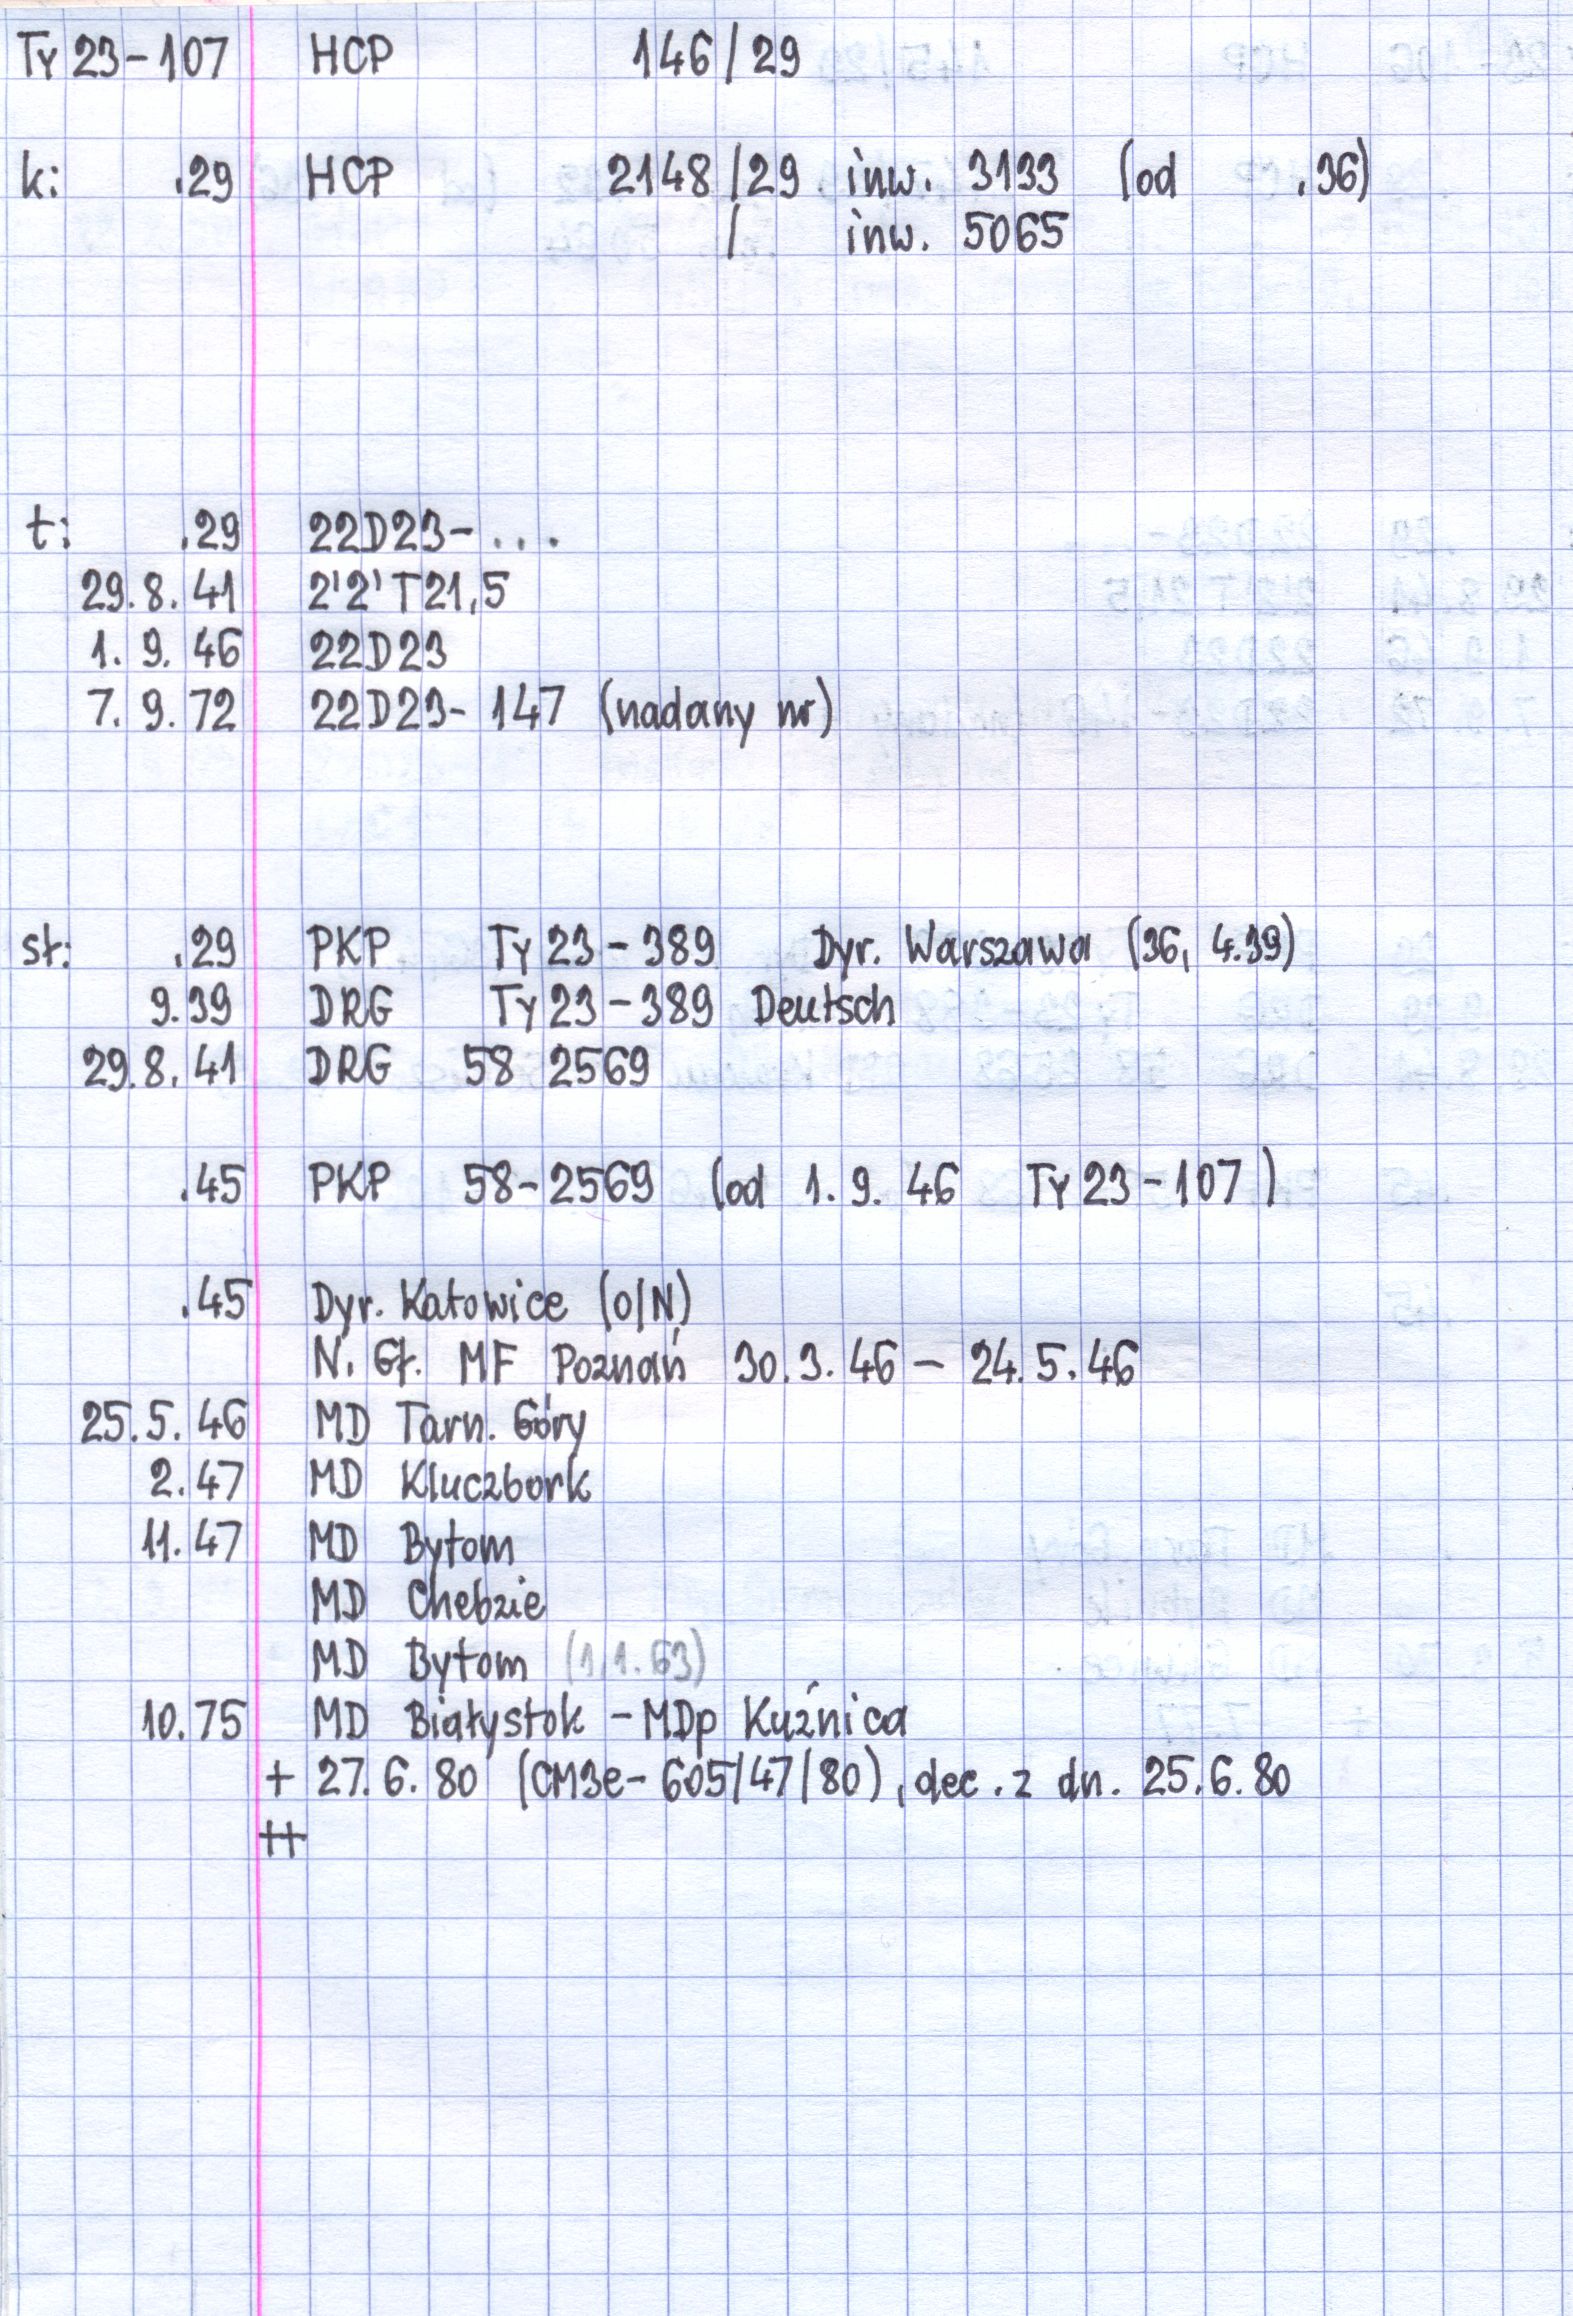 Ty 23-107 HCP 146/29
k: .29 HCP 2148/29 inw. 3133 (od .36)
/ inw. 5065
t: .29 22D23-...
29.8.41 2'2'T21,5
1.9.46 22D23
7.9.72 22D23-147 (nadany nr)
sł: .29 PKP Ty 23-389 Dyr. Warszawa (36, 4.39)
9.39 DRG Ty 23-389 Deutsch
29.8.41 DRG 58 2569
.45 PKP 58-2569 (od 1.9.46 Ty 23-107)
.45 Dyr. Katowice (O/N)
N. Gł. MF Poznań 30.3.46 - 24.5.46
25.5.46 MD Tarn. Góry
2.47 MD Kluczbork
11.47 MD Bytom
MD Chebzie
MD Bytom (1.1.63)
10.75 MD Białystok - MDp Kuźnica
+ 27.6.80 (CM3e-605/47/80), dec. z dn. 25.6.80
++